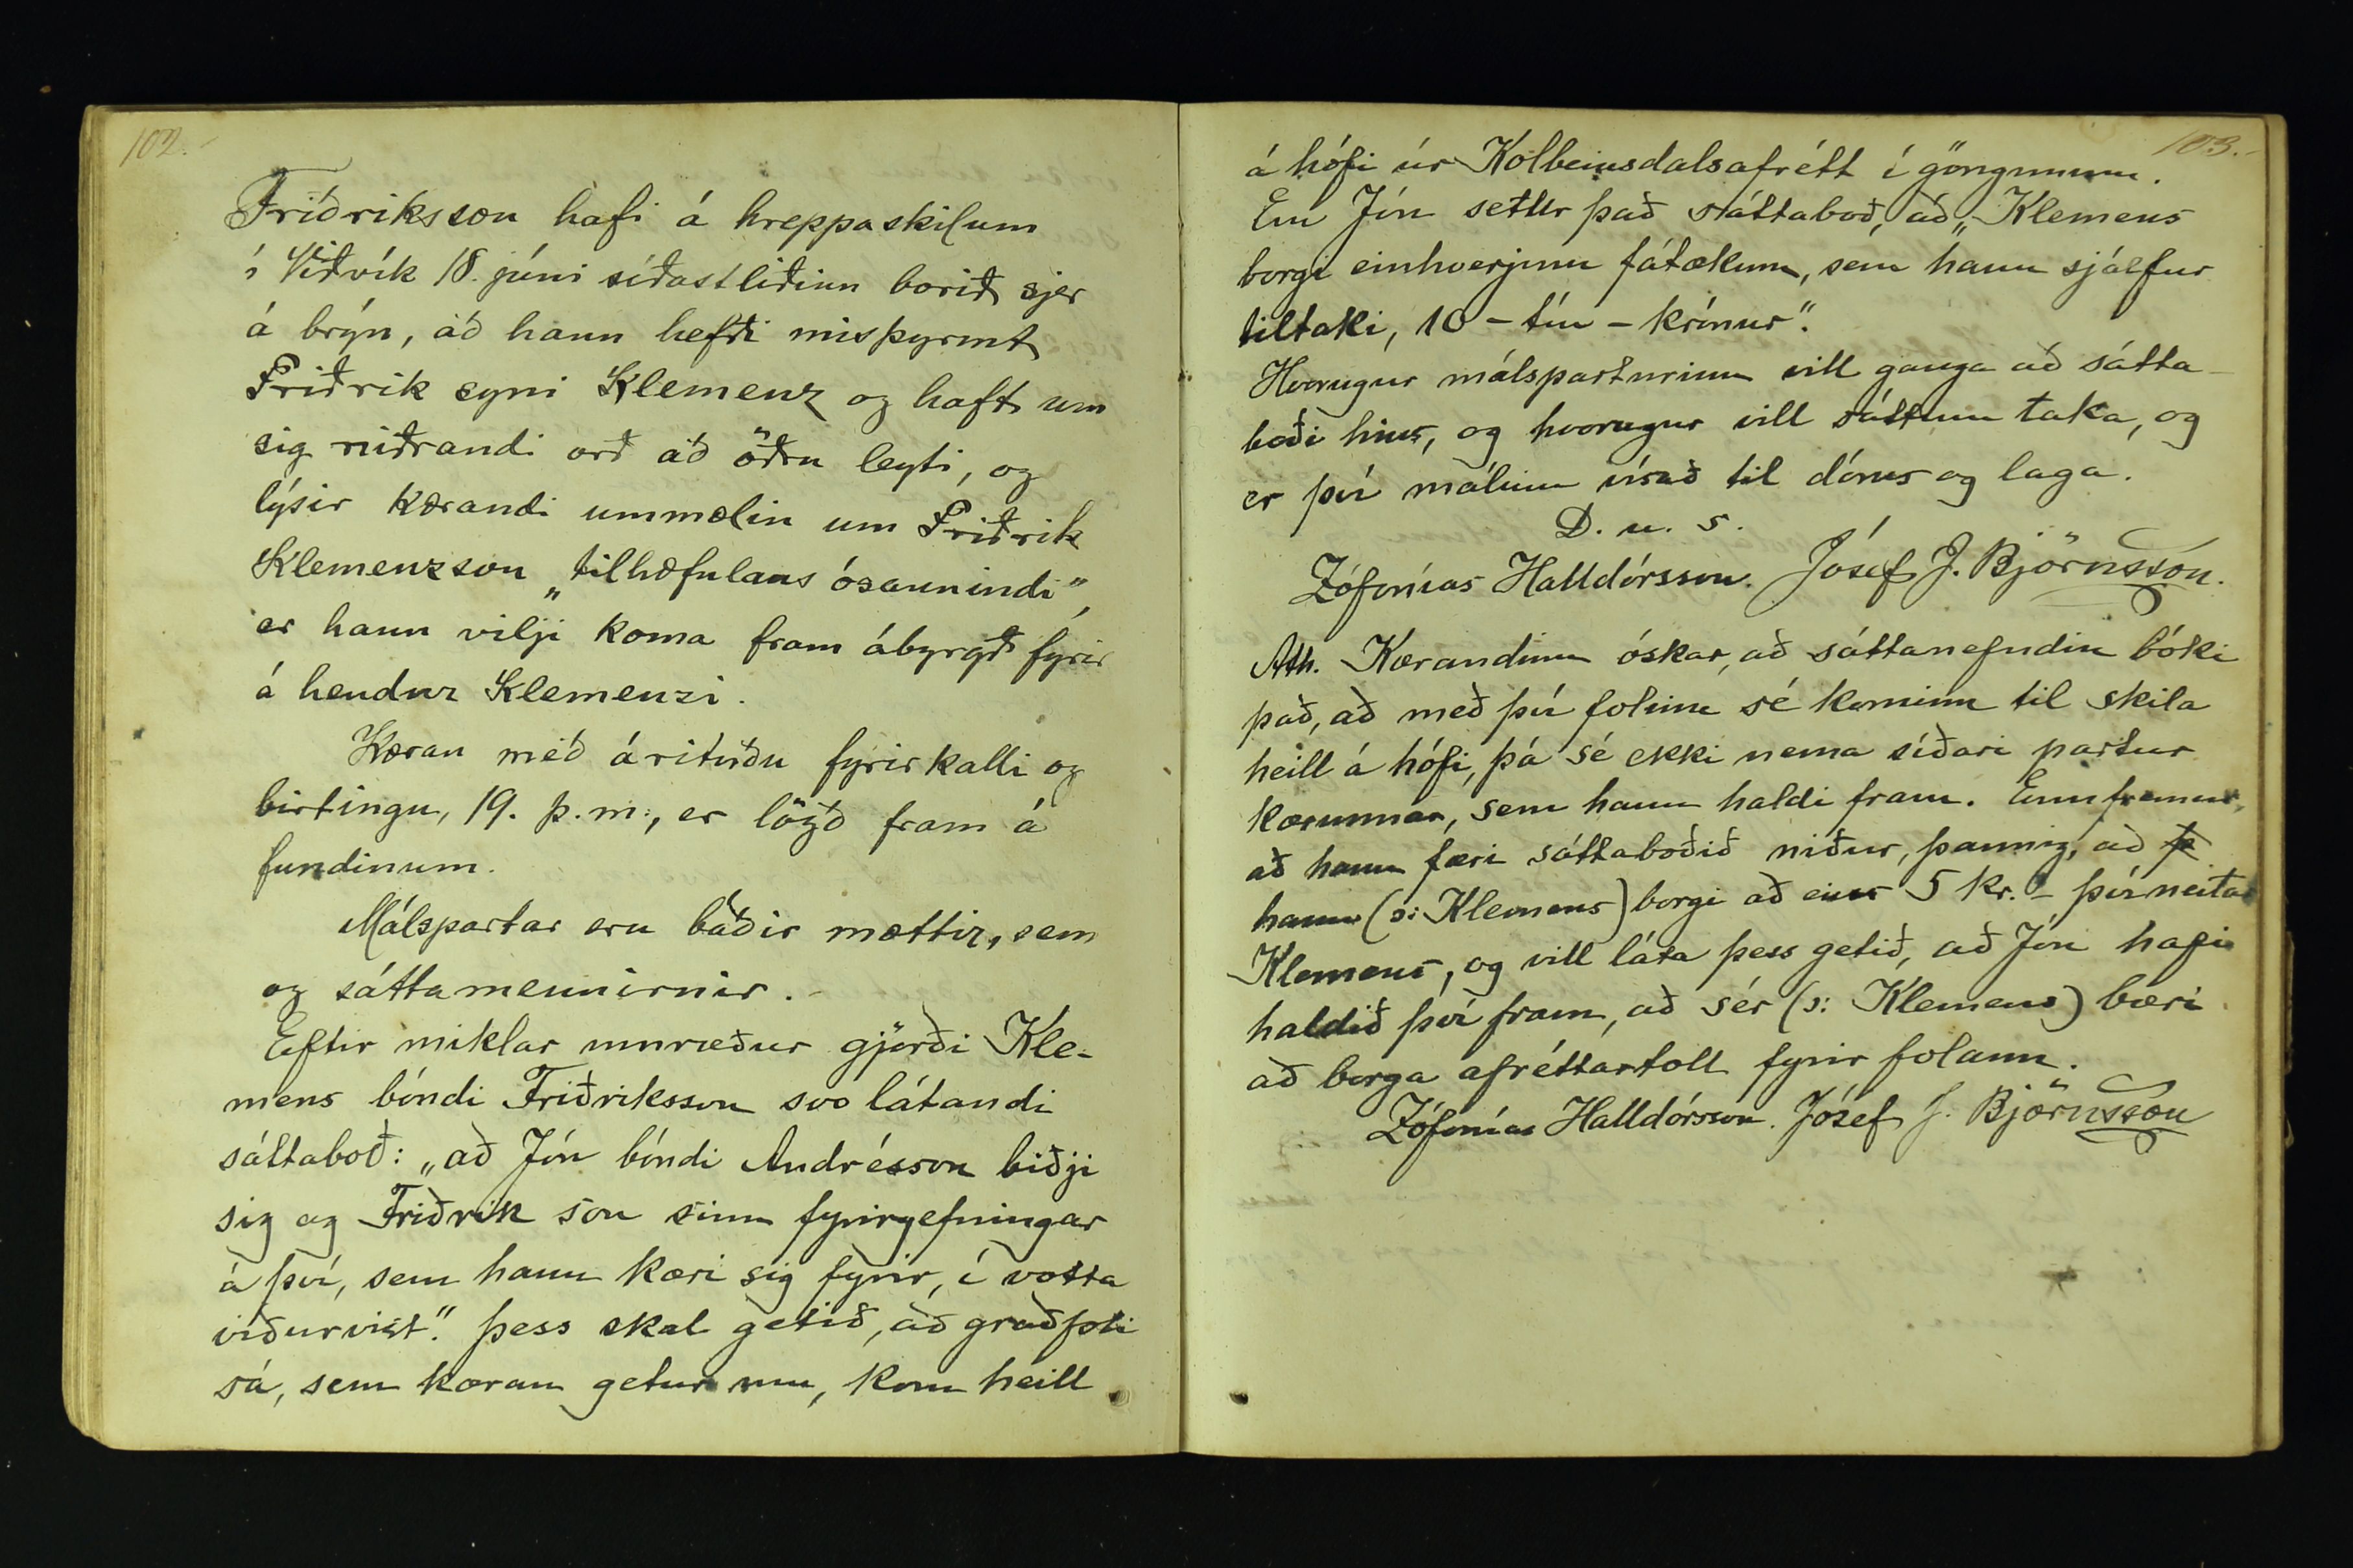 102.
Friðriksson hafi á hreppaskilum
í Viðvík 18. júní síðastliðinn borið sjer
á brýn, að hann hefði misþyrmt
Friðrik syni Klemenz og haft um
sig niðrandi orð að öðru leyti, og
lýsir kærandi ummælin um Friðrik
Klemenzson „tilhæfulaus ósannindi",
er hann vilji koma fram ábyrgð fyrir
á hendur Klemenzi.
Kæran með árituðu fyrirkalli og
birtingu, 19. þ.m., er lögð fram á
fundinum.
Málspartar eru báðir mættir, sem
og sáttamennirnir.
Eftir miklar umræður gjörði Kle-
mens bóndi Friðriksson svo látandi
sáttaboð: „að Jón bóndi Andrésson biðji
sig og Friðrik son sinn fyrirgefningar
á því, sem hann kæri sig fyrir, í votta
viðurvist". Þess skal getið, að graðfoli
sá, sem kæran getur um, kom heill
103.
á hófi úr Kolbeinsdalsafrétt í göngunum.
En Jón setur það sáttaboð, að „Klemens
borgi einhverjum fátækum, sem hann sjálfur
tiltaki, 10 - tíu - krónur".
Hvorugur málsparturinn vill ganga að sátta-
boði hins, og hvorugur vill sáttum taka, og
er því málinu vísað til dóms og laga.
D. u. s.
Zófonías Halldórsson. Jósef J. Björnsson.
Ath. Kærandinn óskar, að sáttanefndin bóki
það, að með því folinn sé kominn til skila
heill á hófi, þá sé ekki nema síðari partur
kærunnar, sem hann haldi fram. Ennfremur,
að hann færi sáttaboðið niður, þannig, að
hann (ɔ: Klemens) borgi að eins 5 kr. - því neitar
Klemens, og vill láta þess getið, að Jón hafi
haldið því fram, að sér (ɔ: Klemens) bæri
að borga afréttartoll fyrir folann.
Zófonías Halldórsson. Jósef J. Björnsson